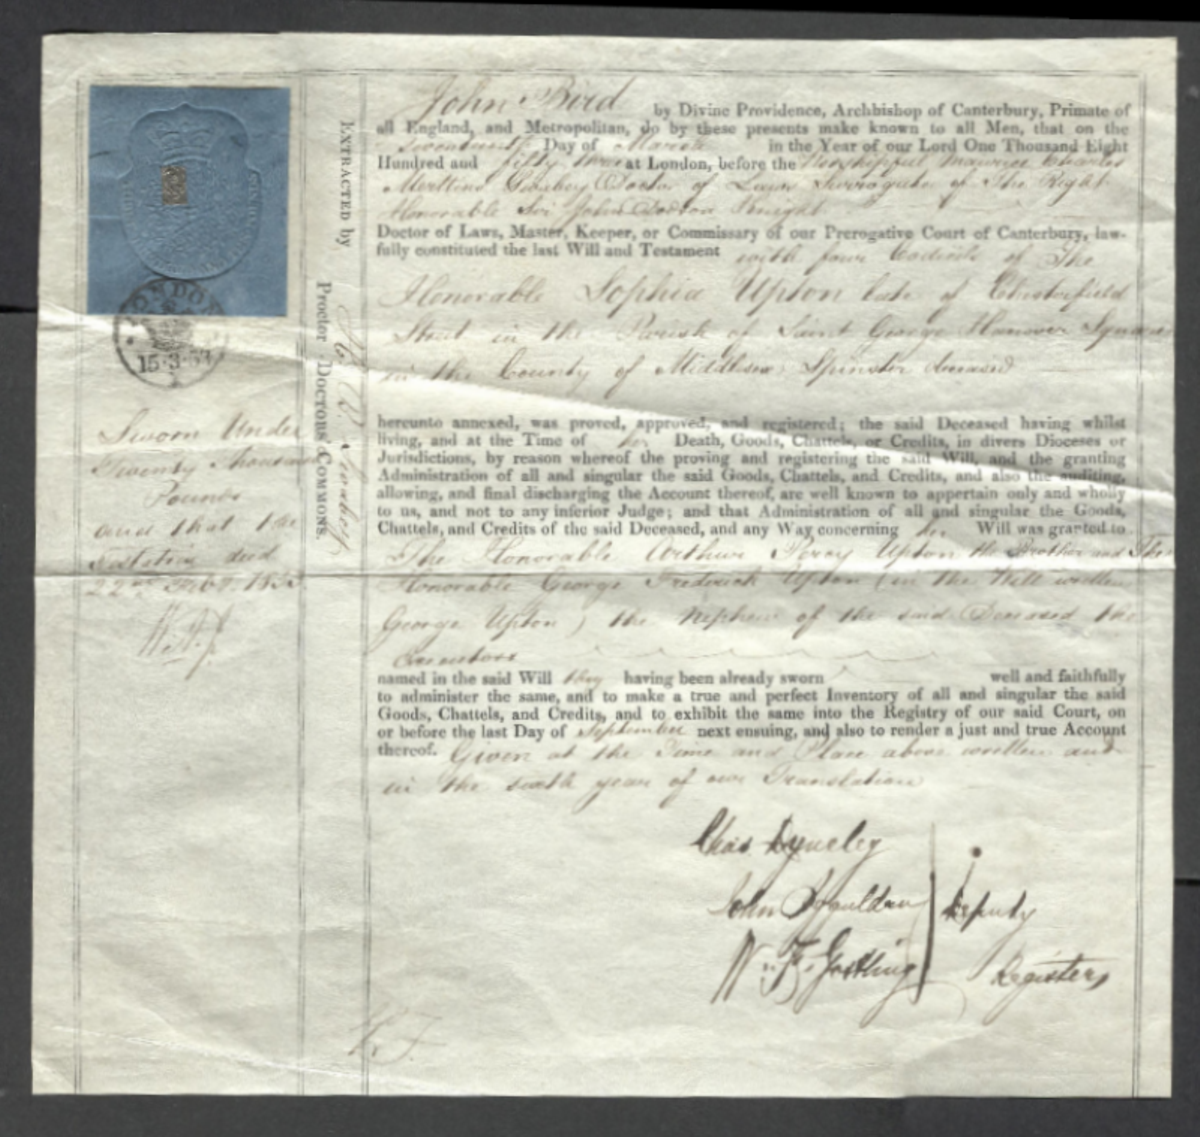 John Bird by Divine Providence, Archbishop of Canterbury, Primate of
all England, and Metropolitan, do by these presents make known to all Men, that on the
Day of March in the Year of our Lord One Thousand Eight
Hundred and fifty three at London, before the Worshipful Maurice Charles
Merttins Swabey Doctor of Laws Surrogate of The Right
Honorable Sir John Dodson Knight
Doctor of Laws, Master, Keeper, or Commissary of our Prerogative Court of Canterbury, law-
fully constituted the last Will and Testament with four Codicils of The
Honorable Sophia Upton late of Chesterfield
Street in the Parish of Saint George Hanover Square
in the County of Middlesex Spinster deceased
hereunto annexed, was proved, approved, and registered; the said Deceased having whilst
living, and at the Time of her Death, Goods, Chattels, or Credits, in divers Dioceses or
Jurisdictions, by reason whereof the proving and registering the said Will, and the granting
Administration of all and singular the said Goods, Chattels, and Credits, and also the auditing,
allowing, and final discharging the Account thereof, are well known to appertain only and wholly
to us, and not to any inferior Judge; and that Administration of all and singular the Goods,
Chattels, and Credits of the said Deceased, and any Way concerning her Will was granted to
The Honorable Arthur Percy Upton the Brother and The
Honorable George Frederick Upton (in the Will written
George Upton) the Nephew of the said Deceased the
Executors
named in the said Will they having been already sworn well and faithfully
to administer the same, and to make a true and perfect Inventory of all and singular the said
Goods, Chattels, and Credits, and to exhibit the same into the Registry of our said Court, on
or before the last Day of September next ensuing, and also to render a just and true Account
thereof. Given at the Time and Place above written and
in the sixth year of our Translation
Chas Dyneley
John Iggulden
W. F. Gostling
Deputy
Registers
EXTRACTED by
Proctor DOCTORS' COMMONS.
LONDON
15·3·53
Sworn Under
Twenty Thousand
Pounds
and that the
Testatrix died
22nd Feby. 1853